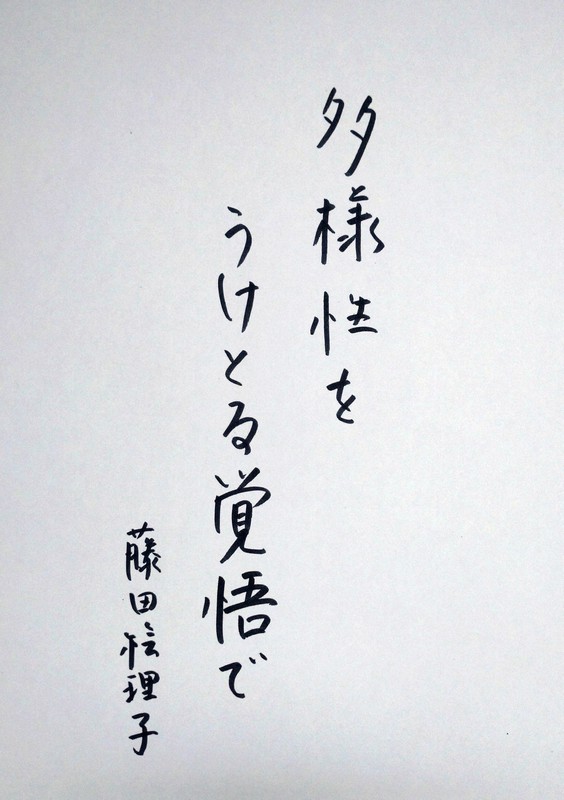 多様性を
うけとる覚悟で
藤田絵理子